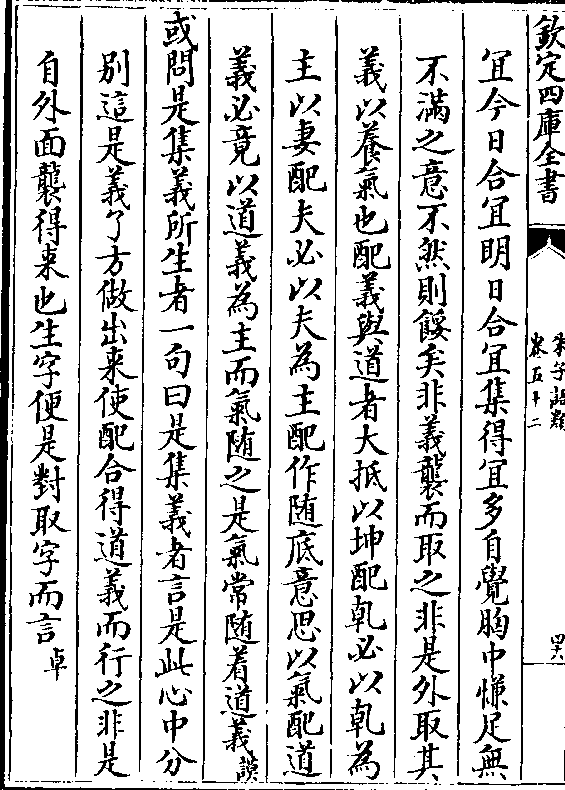 欽定四庫全書
朱子語類
卷五十二
四六
宜今日合宜明日合宜集得宜多自覺胸中慊足無
不滿之意不然則餒矣非義襲而取之非是外取其
義以養氣也配義與道者大抵以坤配乹必以乹為
主以妻配夫必以夫為主配作随底意思以氣配道
義必竟以道義為主而氣随之是氣常随着道義謨
或問是集義所生者一句曰是集義者言是此心中分
別這是義了方做出來使配合得道義而行之非是
自外面襲得來也生字便是對取字而言卓